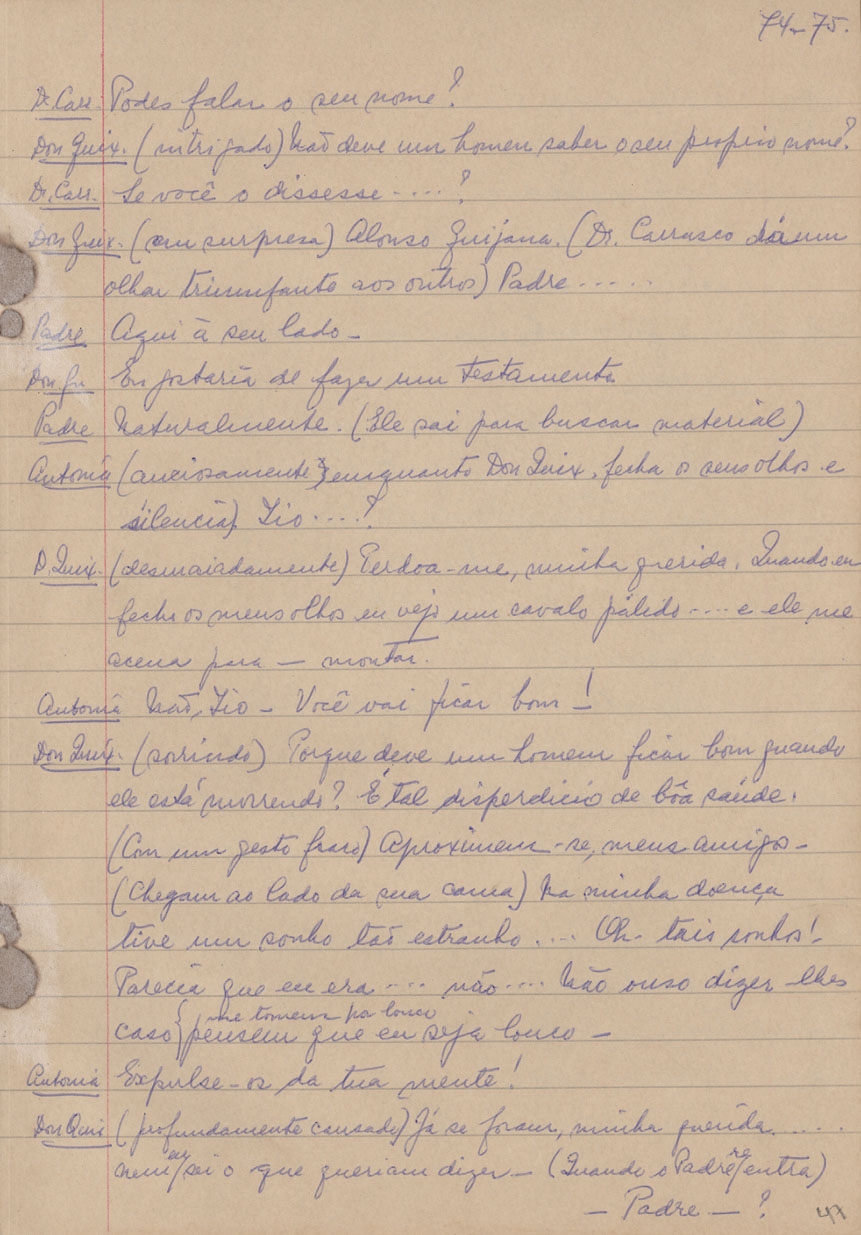 74-75.
Dr. Carr. Podes falar o seu nome?
Don Quix. (intrigado) Não deve um homem saber o seu proprio nome?
Dr. Carr. Se você o dissesse....?
Don Quix. (em surpresa) Alonso Quijana. (Dr. Carrasco dá um
olhar triunfante aos outros) Padre.....
Padre Aqui à seu lado-
Don Qu Eu gostaria de fazer um testamento.
Padre Naturalmente. (Ele sai para buscar material)
Antonia (anciosamente, enquanto Don Quix. fecha os seus olhos e
silencia). Tio....?
D. Quix. (desmaiadamente) Perdoa-me, minha querida. Quando eu
fecho os meus olhos eu vejo um cavalo pálido.... e ele me
acena para - montar.
Antonia Não, Tio - Você vai ficar bom!
Don Quix. (sorrindo) Porque deve um homem ficar bom quando
ele está morrendo? É tal disperdicio de bôa saúde.
(Com um gesto fraco) Aproximem-se, meus amigos-
(Chegam ao lado da sua cama) Na minha doença
tive um sonho tão estranho.... Oh- tais sonhos!
Parecia que eu era.... não.... Não ouso dizer-lhes
me tomem por louco
caso { pensem que eu seja louco -
Antonia Expulse-os da tua mente!
Don Quix (profundamente cansado) Já se foram, minha querida.....
nem eu sei o que queriam dizer- (Quando o Padre re/entra)
- Padre - ?
47